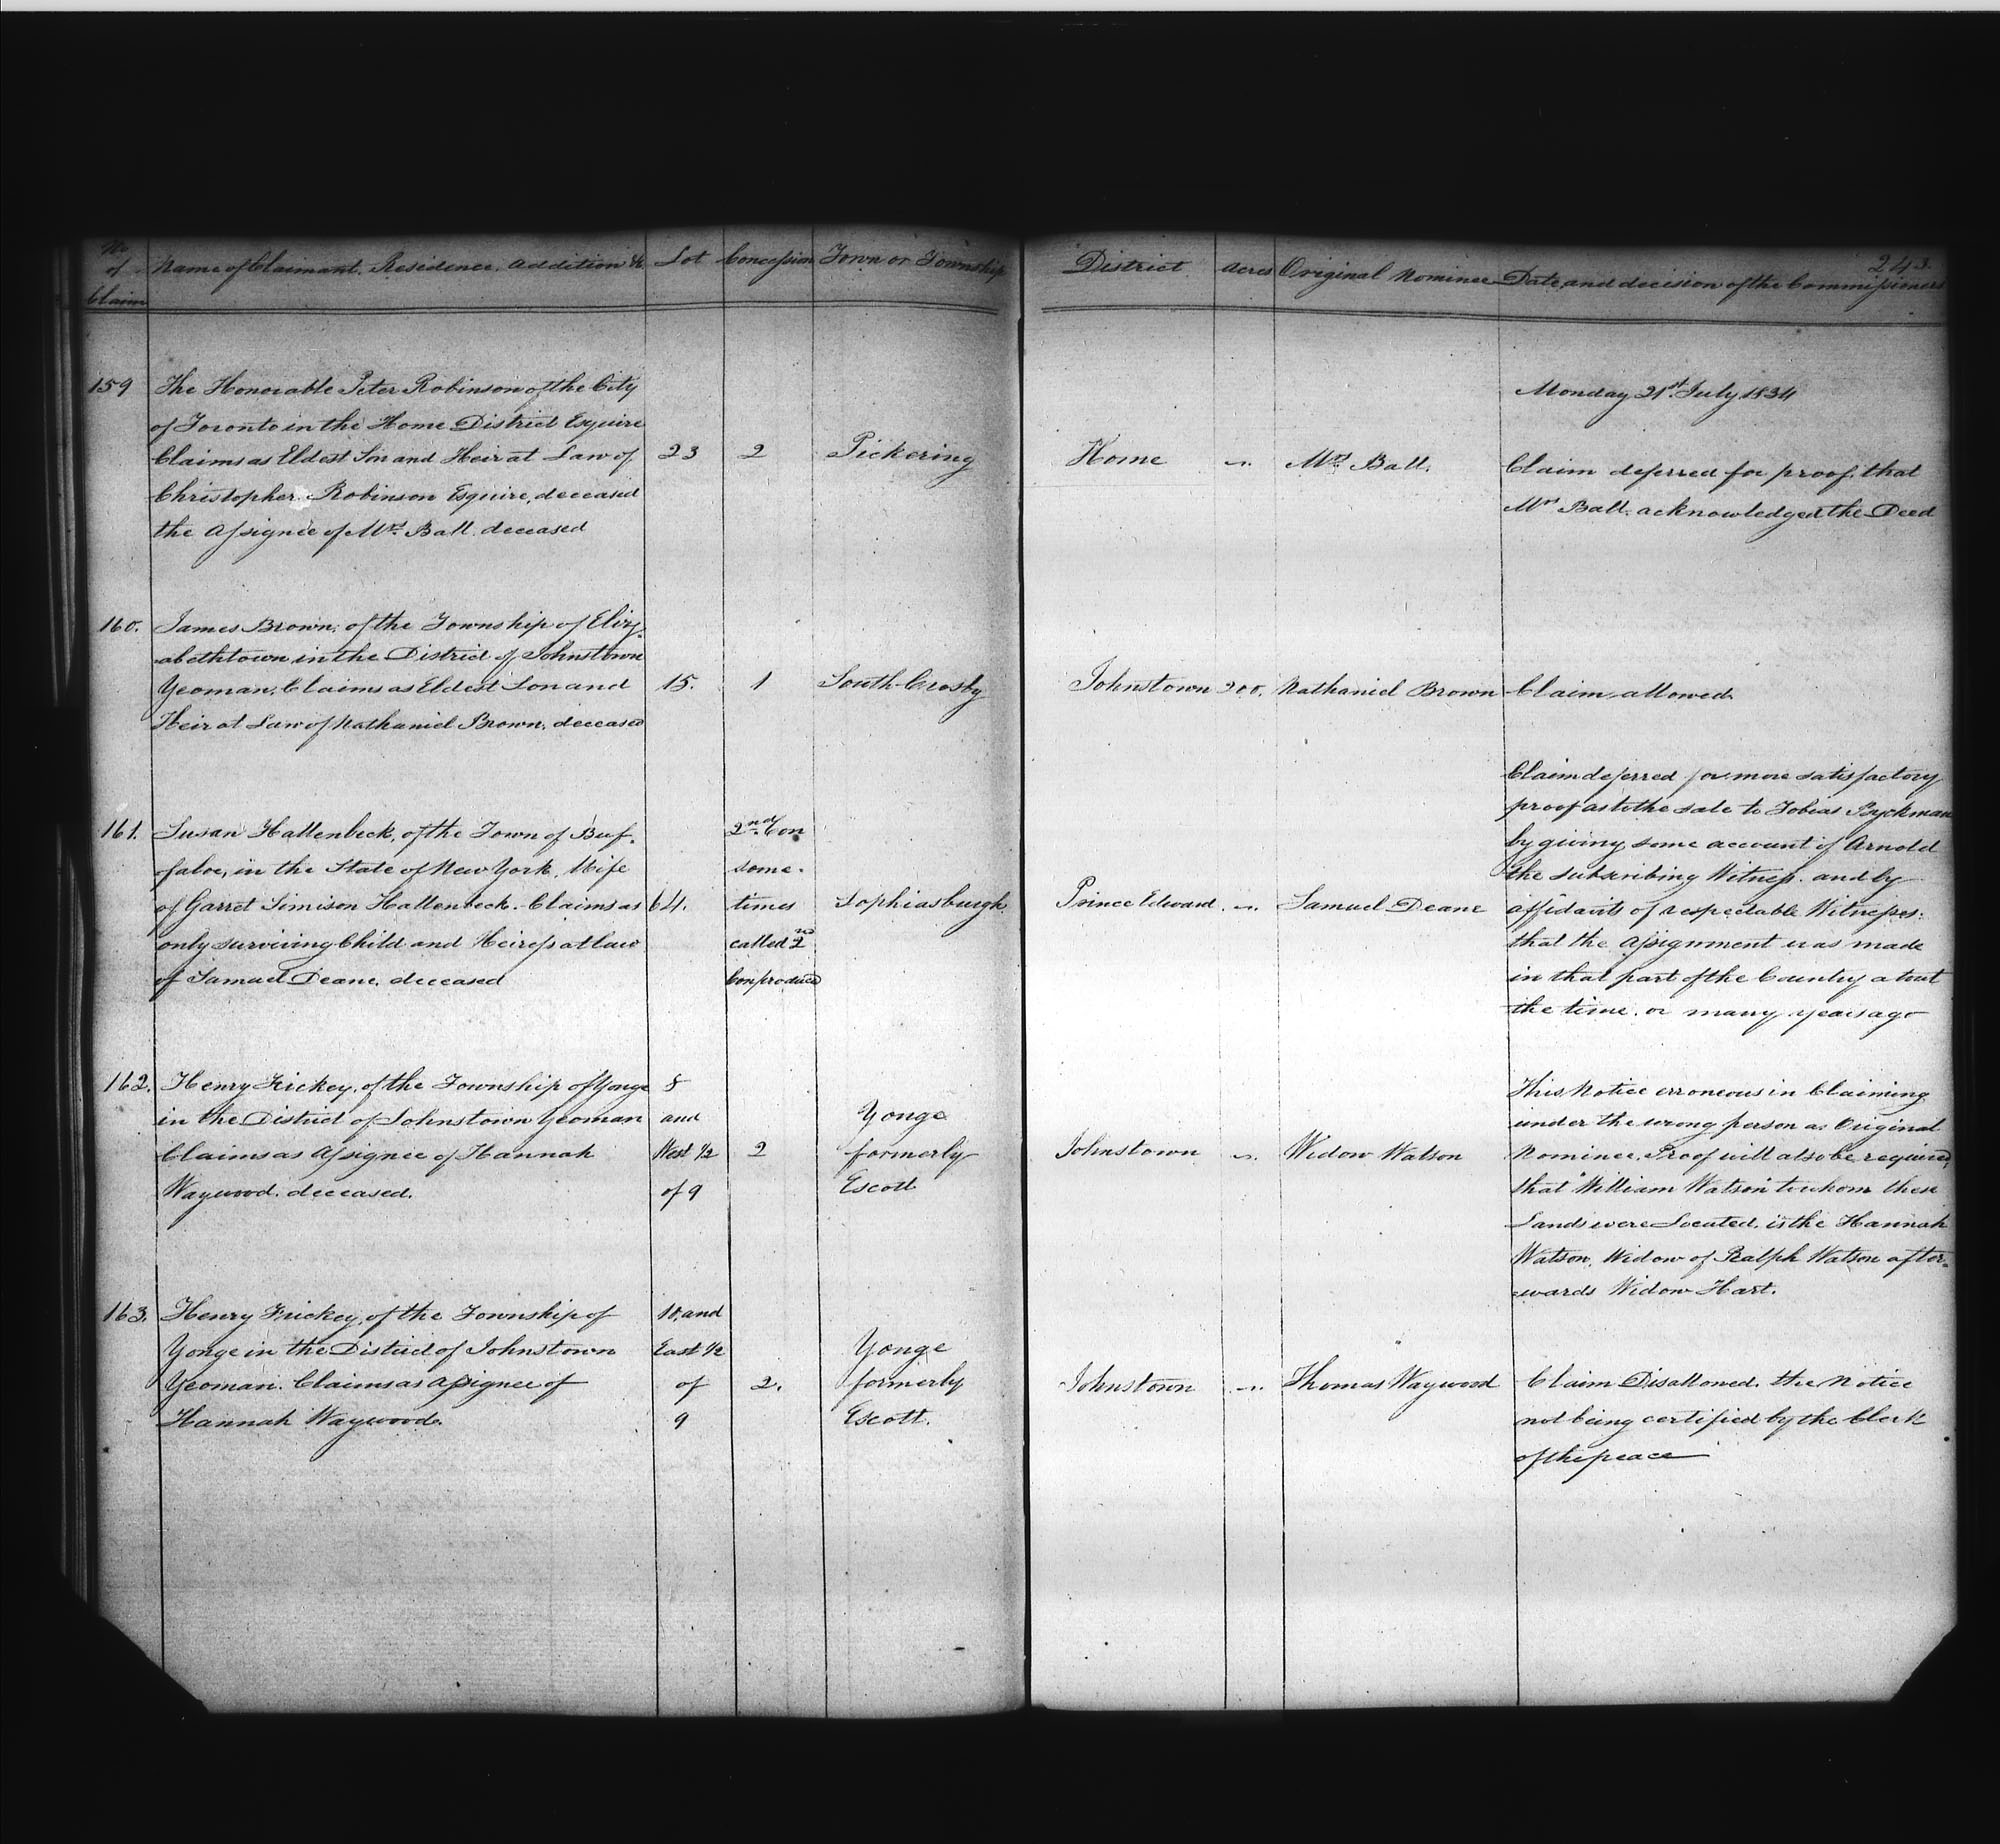 No of Claim
Name of Claimant, Residence, Addition &c
Lot
Concession
Town or Township
District
Acres
Original Nominee
Date, and decision of the Commissioners
243.
159
The Honorable Peter Robinson of the City
of Toronto in the Home District Esquire
Claims as Eldest Son and Heir at Law of
Christopher Robinson Esquire, deceased
the Assignee of Mrs. Ball, deceased
23
2
Pickering
Home
"
Mrs. Ball.
Monday 21st. July 1834
Claim deferred for proof, that
Mrs Ball. acknowledged the Deed
160.
James Brown, of the Township of Eliz-
abethtown in the District of Johnstown
Yeoman, Claims as Eldest Son and
Heir at Law of Nathaniel Brown, deceased
15.
1
South Crosby
Johnstown
200.
Nathaniel Brown
Claim allowed.
161.
Susan Hallenbeck, of the Town of Buf-
faloe, in the State of New York, Wife
of Garret Simison Hallenbeck. Claims as
only surviving Child and Heiress at law
of Samuel Deane, deceased
64.
2nd. Con
some-
times
called 2nd
Con produced
Sophiasburgh
Prince Edward
"
Samuel Deane
Claim deferred for more satisfactory
proof as to the sale to Tobias Ryckman
by giving some account of Arnold
the subscribing Witness. and by
affidavits of respectable Witnesses:
that the Assignment was made
in that part of the Country about
the time, or many years ago
162.
Henry Frickey, of the Township of Yonge
in the District of Johnstown Yeoman
Claims as Assignee of Hannah
Waywood, deceased.
8
and
West 1/2
of 9
2
Yonge
formerly
Escott
Johnstown
"
Widow Watson
This Notice erroneous in Claiming
under the wrong person as Original
Nominee. Proof will also be required,
that "William Watson" to whom these
Lands were Located, is the Hannah
Watson, Widow of Ralph Watson after-
wards Widow Hart.
163.
Henry Frickey, of the Township of
Yonge in the District of Johnstown
Yeoman. Claims as Assignee of
Hannah Waywood.
10, and
East 1/2
of
9
2.
Yonge
formerly
Escott.
Johnstown
"
Thomas Waywood
Claim Disallowed. the Notice
not being certified by the Clerk
of the peace